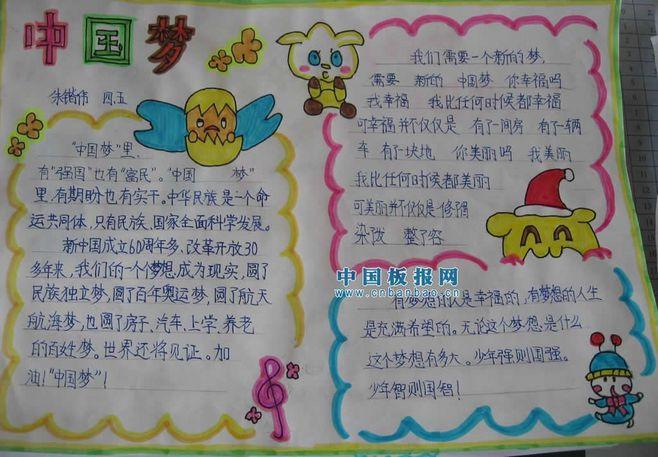 中国梦
朱锴伟 四五
"中国梦"里,
有"强国"也有"富民"。"中国 梦"
里,有期盼也有实干。中华民族是一个命
运共同体,只有民族、国家全面科学发展。
新中国成立60周年多、改革开放30
多年来,我们的一个个梦想成为现实,圆了
民族独立梦,圆了百年奥运梦,圆了航天
航海梦,也圆了房子、汽车、上学、养老
的百姓梦。世界还将见证。加
油!"中国梦"!
我们需要一个新的梦,
需要 新的 中国梦 你幸福吗
我幸福 我比任何时候都幸福
可幸福并不仅仅是 有了一间房 有了一辆
车 有了一块地 你美丽吗 我美丽
我比任何时候都美丽
可美丽并不仅仅是修福
染泼 整了容
中国板报网
www.cnbanbao.cn
有梦想的人是幸福的,有梦想的人生
是充满希望的。无论这个梦想是什么
这个梦想有多大。少年强则国强。
少年智则国智!